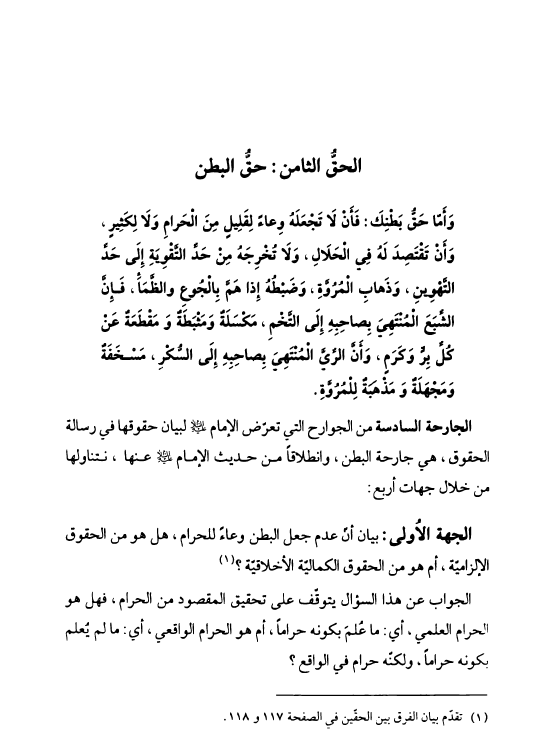 الحقُّ الثامن : حقُّ البطن
وَأَمّا حَقُّ بَطْنِكَ : فَأَنْ لَا تَجْعَلَهُ وِعاءً لِقَلِيلٍ مِنَ الْحَرامِ وَلَا لِكَثِيرٍ ،
وَأَنْ تَقْتَصِدَ لَهُ فِي الْحَلَالِ ، وَلَا تُخْرِجَهُ مِنْ حَدِّ التَّقْوِيَةِ إِلَى حَدِّ
التَّهْوِينِ ، وَذَهابِ الْمُرُوَّةِ ، وَضَبْطُهُ إِذا هَمَّ بِالْجُوعِ والظَّمَأْ ، فَـإِنَّ
الشَّبَعَ الْمُنْتَهِيَ بِصاحِبِهِ إِلَى التَّخْمِ ، مَكْسَلَةٌ وَمَثْبَطَةٌ وَ مَقْطَعَةٌ عَنْ
كُلِّ بِرٍّ وَكَرَمٍ ، وَأَنَّ الرَّيَّ الْمُنْتَهِيَ بِصاحِبِهِ إِلَى السُّكْرِ ، مَسْـخَفَةٌ
وَمَجْهَلَةٌ وَ مَذْهَبَةٌ لِلْمُرُوَّةِ .
الجارحة السادسة من الجوارح التي تعرّض الإمام ﷺ لبيان حقوقها في رسالة
الحقوق ، هي جارحة البطن ، وانطلاقاً مـن حديث الإمـام ﷺ عـنها ، نـتناولها
من خلال جهات أربع :
الجهة الأُولى : بيان أنّ عدم جعل البطن وعاءً للحرام ، هل هو من الحقوق
الإلزاميّة ، أم هو من الحقوق الكماليّة الأخلاقيّة ؟(١)
الجواب عن هذا السؤال يتوقّف على تحقيق المقصود من الحرام ، فهل هو
الحرام العلمي ، أي : ما عُلمَ بكونه حراماً ، أم هو الحرام الواقعي ، أي : ما لم يُعلم
بكونه حراماً ، ولكنّه حرام في الواقع ؟
(١) تقدّم بيان الفرق بين الحقّين في الصفحة ١١٧ و ١١٨ .